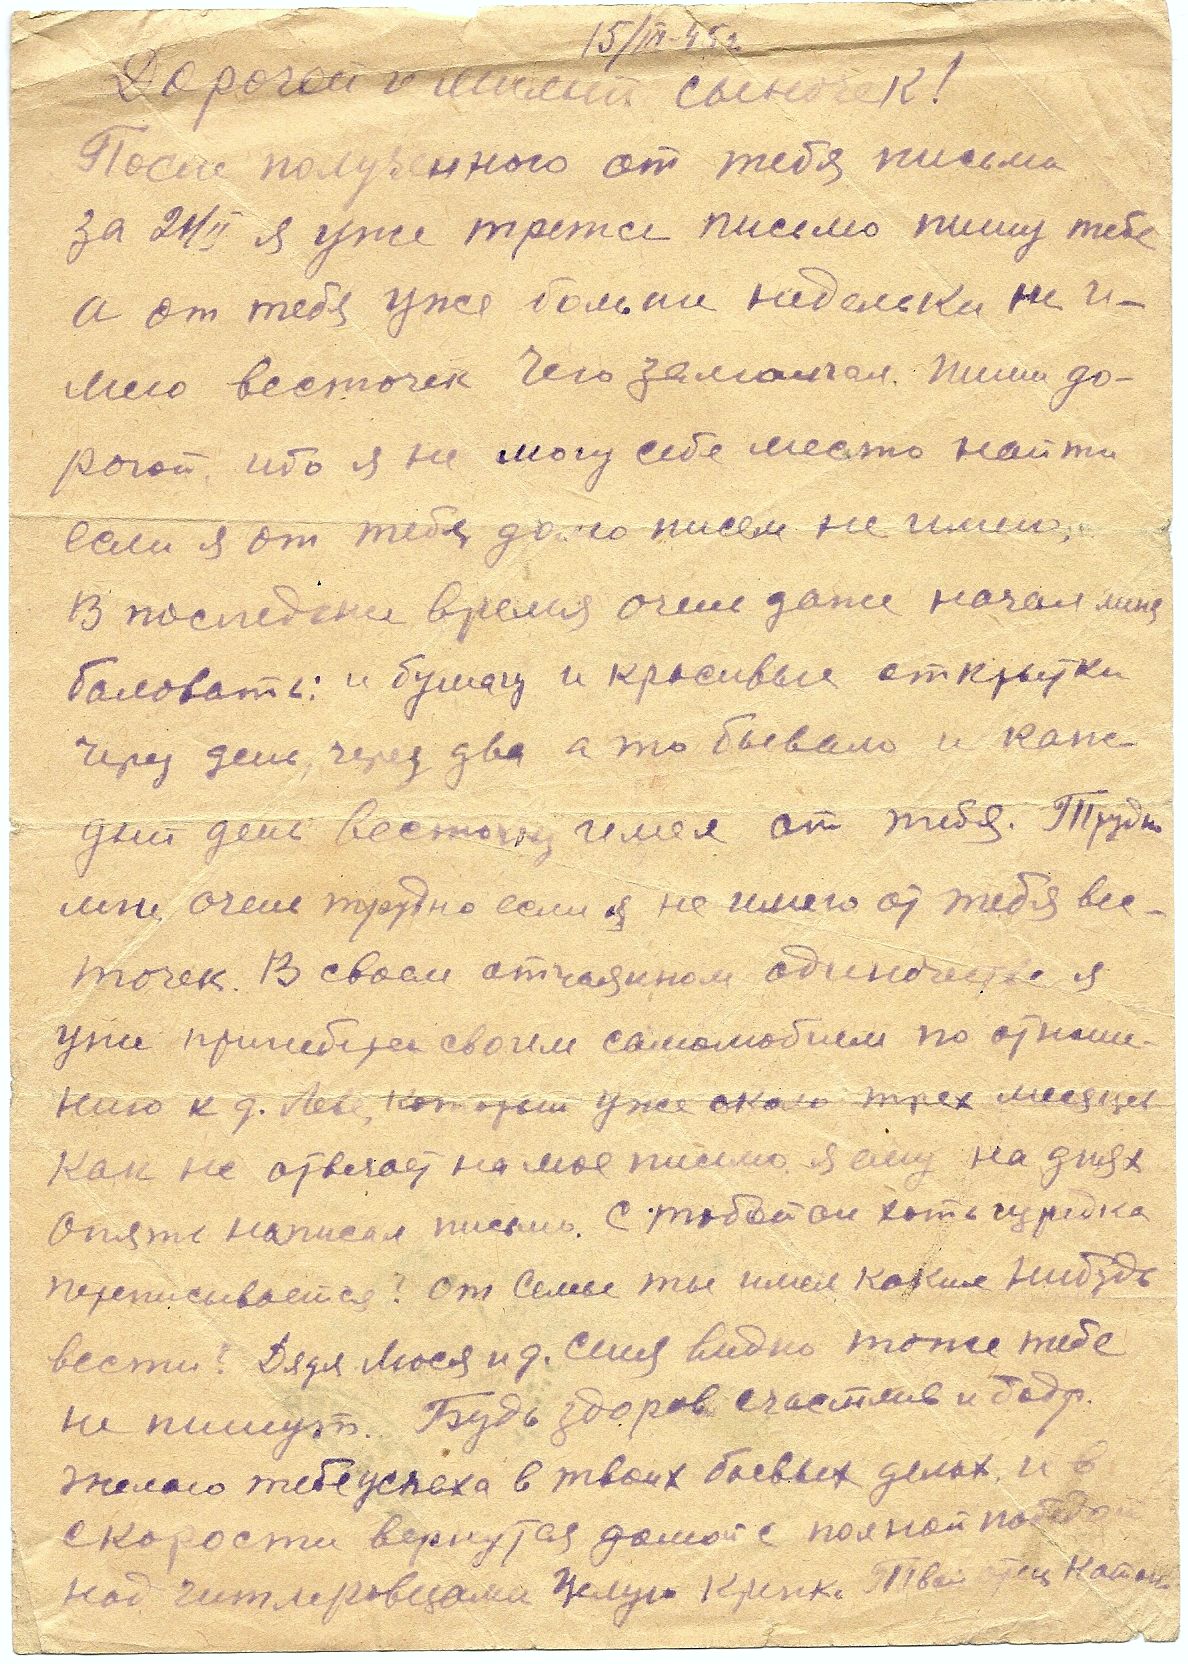 15/III-45 г.
Дорогой и милый сыночек!
После полученного от тебя письма
за 24/II я уже трете письмо пишу тебе
а от тебя уже больше недельки не и-
мею весточек Чего замолчал. Пиши до-
рогой, ибо я не могу себе место найти
если я от тебя долго писем не имею.
В последние время очень даже начал меня
баловать: и бумагу и красивые открытки
через день, через два а то бывало и каж-
дый день весточку имел от тебя. Трудно
мне, очень трудно если я не имею от тебя вес-
точек. В своем отчаянном одиночестве я
уже принебрег своем самолюбием по отноше-
нию к д. Леве, который уже около трех месяцев
как не отвечает на мое письмо. я ему на днях
опять написал письмо. С тобой он хоть изредка
переписывается? От Семы ты имел какие нибудь
вести? Дядя Люся и д. Сеня видно тоже тебе
не пишут. Будь здоров счастлив и бодр.
Желаю тебе успеха в твоих боевых делах, и в
скорости вернутся домой с полной победой
над гитлеровцами Целую крепко Твой отец